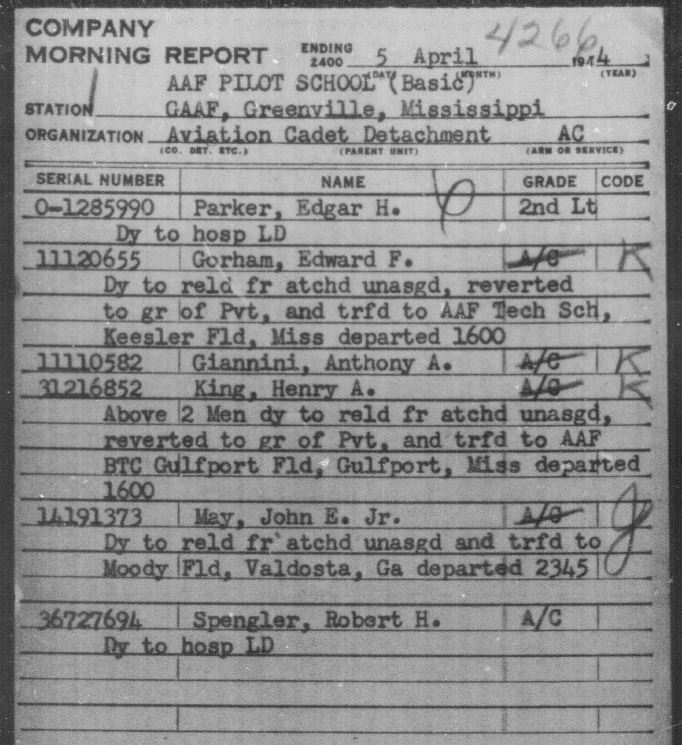 4266
COMPANY
MORNING REPORT ENDING 2400 5 April 1944
(DAY) (MONTH) (YEAR)
AAF PILOT SCHOOL (Basic)
STATION GAAF, Greenville, Mississippi
ORGANIZATION Aviation Cadet Detachment AC
(CO. DET. ETC.) (PARENT UNIT) (ARM OR SERVICE)
SERIAL NUMBER NAME GRADE CODE
O-1285990 Parker, Edgar H. 2nd Lt
Dy to hosp LD
11120655 Gorham, Edward F. A/C K
Dy to reld fr atchd unasgd, reverted
to gr of Pvt, and trfd to AAF Tech Sch,
Keesler Fld, Miss departed 1600
11110582 Giannini, Anthony A. A/C K
31216852 King, Henry A. A/C K
Above 2 Men dy to reld fr atchd unasgd,
reverted to gr of Pvt, and trfd to AAF
BTC Gulfport Fld, Gulfport, Miss departed
1600
14191373 May, John E. Jr. A/C
Dy to reld fr atchd unasgd and trfd to
Moody Fld, Valdosta, Ga departed 2345
36727694 Spengler, Robert H. A/C
Dy to hosp LD